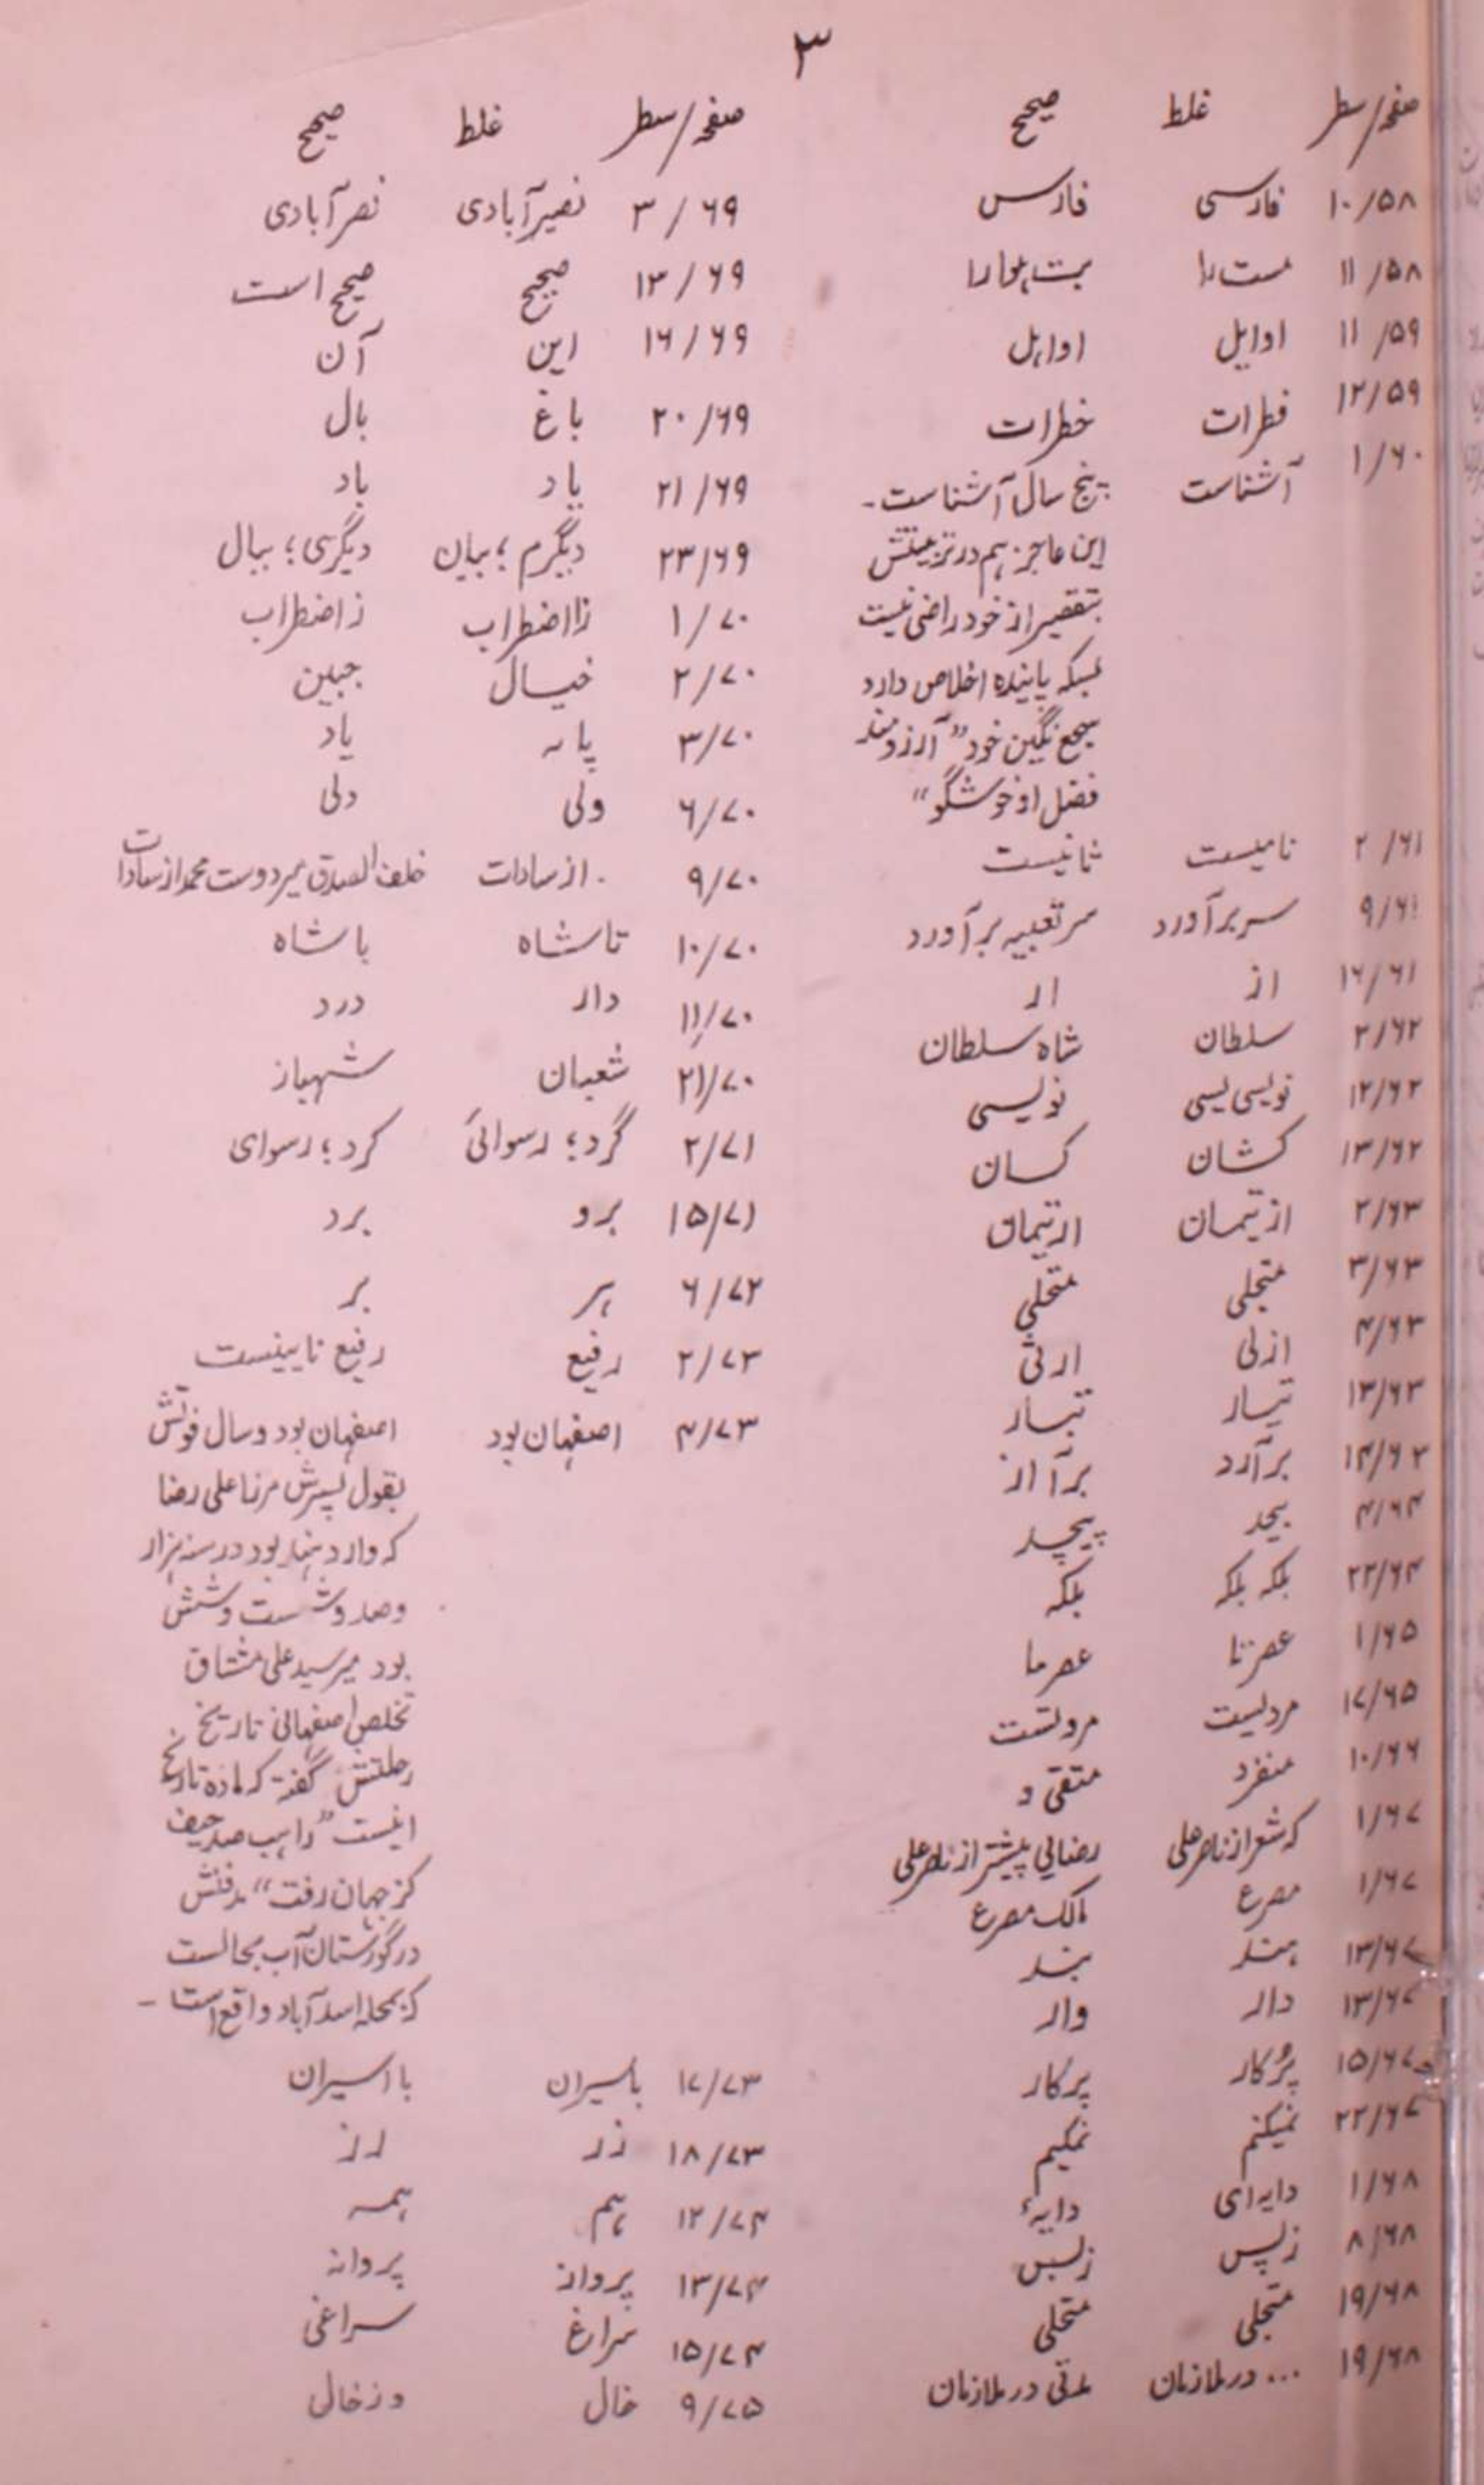 ۳
صفحہ/سطر غلط صحیح
۱۰/۵۸ فارسی فارس
۱۱/۵۸ ست را بت ہوا را
۱۱/۵۹ اوایل اواہل
۱۲/۵۹ فطرات خطرات
۱/۶۰ آشناست پنج سال آشناست۔
این عاجز ہم در تربیتش
بتقصیر از خود راضی نیست
بسکہ بابندہ اخلاص دارد
سجع نگین خود "آرزومند
فضل او خوشگو"
۲/۶۱ نامیست ثانیست
۹/۶۱ سر برآورد سر تعبیہ برآورد
۱۶/۶۱ از ار
۲/۶۲ سلطان شاہ سلطان
۱۲/۶۲ نویسی یسی نویسی
۱۳/۶۲ کشان کسان
۲/۶۳ از تیمان ارتیمان
۳/۶۳ متجلی متحلی
۴/۶۳ ازلی ارثی
۱۳/۶۳ تیسار تبسار
۱۴/۶۳ برآرد برآ از
۴/۶۴ بیحد پیچد
۲۳/۶۴ بلکہ بلکہ بلکہ
۱/۶۵ عصرنا عصرما
۱۷/۶۵ مردیست مروتست
۱۰/۶۶ منفرد متقی و
۱/۶۷ کہ شعر از ناصر علی رضایی پیشتر از ناصر علی
۱/۶۷ مصرع مالک مصرع
۱۳/۶۷ ہند بند
۱۳/۶۷ دار وار
۱۵/۶۷ پُرکار پرکار
۲۲/۶۷ نمیکنم نمکیم
۱/۶۸ دایہ ای دایۂ
۸/۶۸ زپس زبس
۱۹/۶۸ متجلی متحلی
۱۹/۶۸ ... در ملازمان مدتی در ملازمان
صفحہ/سطر غلط صحیح
۳/۶۹ نصیرآبادی نصرآبادی
۱۳/۶۹ صحیح صحیح است
۱۶/۶۹ این آن
۲۰/۶۹ باغ بال
۲۱/۶۹ یاد باد
۲۳/۶۹ دیگرم؛ بیان دیگری؛ ببال
۱/۷۰ زا اضطراب ز اضطراب
۲/۷۰ خیال جبین
۳/۷۰ پا یاد
۶/۷۰ ولی دلی
۹/۷۰ از سادات خلف الصدق میر دوست محمد از سادات
۱۰/۷۰ تا شاہ با شاہ
۱۱/۷۰ دار درد
۲۱/۷۰ شعبان شہباز
۲/۷۱ گرد؛ رسوائی کرد؛ رسوای
۱۵/۷۱ برو برد
۶/۷۲ ہر بر
۲/۷۳ رفیع رفیع نایینست
۴/۷۳ اصفہان بود اصفہان بود و سال فوتش
بقول پسرش مرزا علی رضا
کہ وارد ہند بود در سنہ ہزار
و صد و شست و شش
بود میر سید علی مشتاق
تخلص اصفہانی تاریخ
رحلتش گفتہ کہ مادہ تاریخ
اینست "راہب صد حیف
کز جہان رفت" مدفنش
در گورستان آب بجالست
کہ بمحلہ اسدآباد واقع است۔
۱۷/۷۳ باسیران با اسیران
۱۸/۷۳ زر رز
۱۲/۷۴ ہم ہمہ
۱۳/۷۴ پرواز پروانہ
۱۵/۷۴ سراغ سراغی
۹/۷۵ خال و زخال